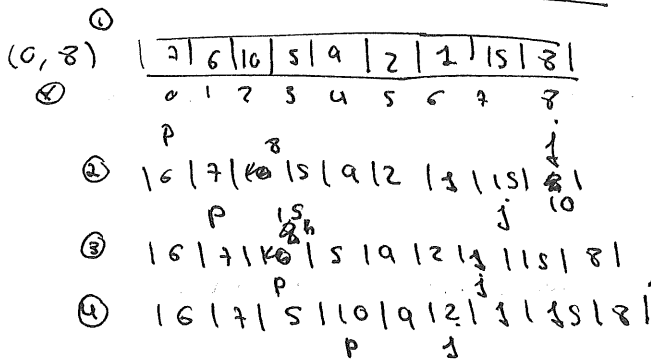 ①
(0, 8) | 7 | 6 | 10 | 5 | 9 | 2 | 1 | 15 | 8 |
0 1 2 3 4 5 6 7 8
p j
8
② | 6 | 7 | 10 | 5 | 9 | 2 | 1 | 15 | 8 |
p j 10
15
③ | 6 | 7 | 10 | 5 | 9 | 2 | 1 | 15 | 8 |
p j
④ | 6 | 7 | 5 | 10 | 9 | 2 | 1 | 15 | 8 |
p j